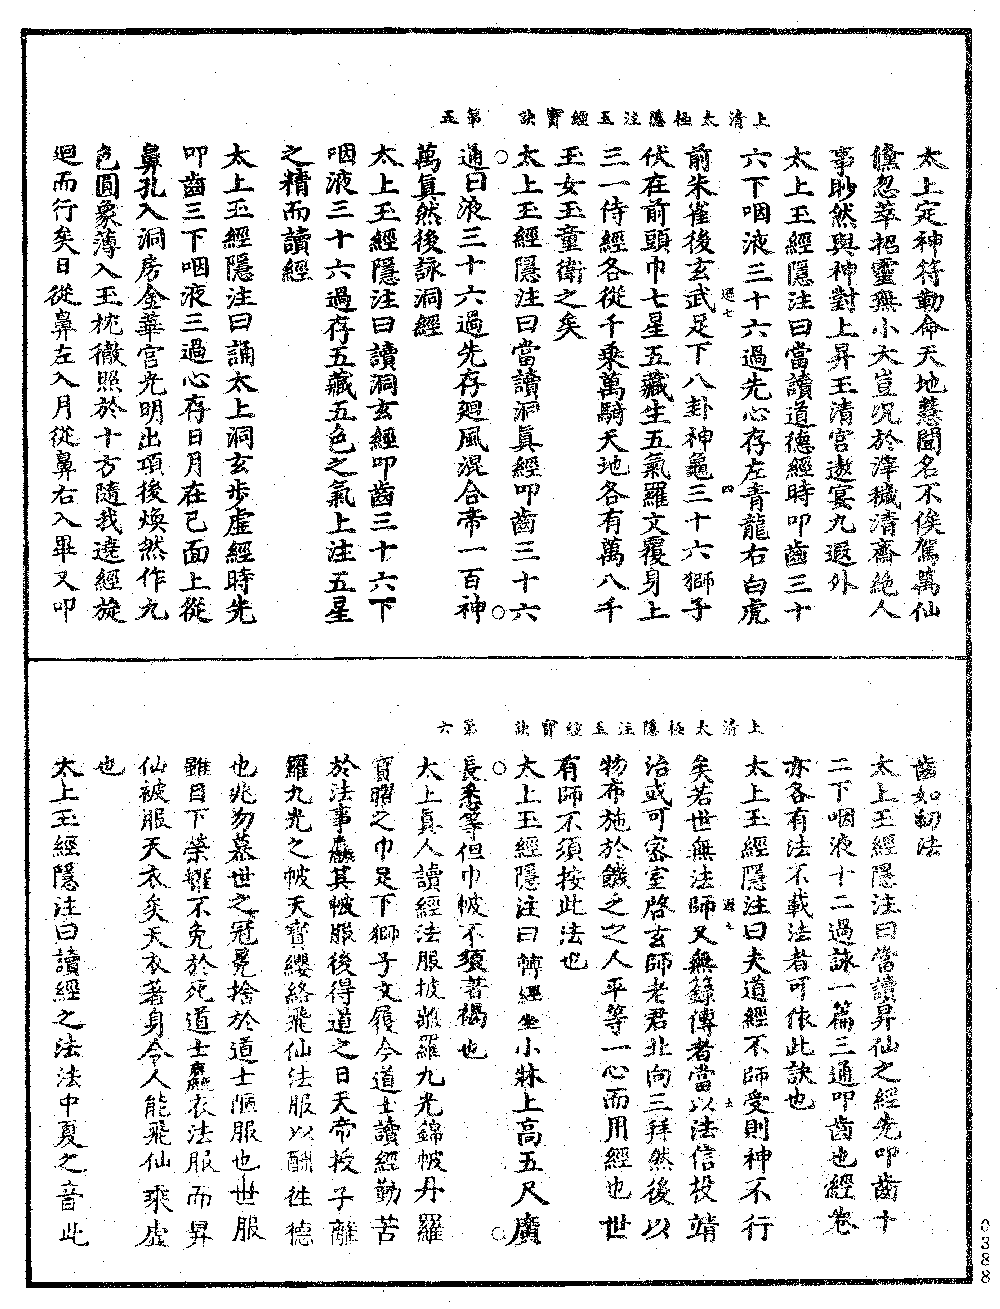 上清太極隱注玉經寶訣　第五
太上定神符動命天地慧聞名不俟駕萬仙
儵忽萃招靈無小大豈况於滓穢清齋絶人
事眇然與神對上昇玉清宮遨宴九遐外
太上玉經隱注曰當讀道德經時叩齒三十
六下咽液三十六過先心存左青龍右白虎
前朱雀後玄武足下八卦神龜三十六獅子
伏在前頭巾七星五藏生五氣羅文覆身上
三一侍經各從千乘萬騎天地各有萬八千
玉女玉童衛之矣
太上玉經隱注曰當讀洞真經叩齒三十六
通曰液三十六過先存廻風混合帝一百神
萬真然後詠洞經
太上玉經隱注曰讀洞玄經叩齒三十六下
咽液三十六過存五藏五色之氣上注五星
之精而讀經
太上玉經隱注曰誦太上洞玄步虛經時先
叩齒三下咽液三過心存日月在己面上從
鼻孔入洞房金華宮光明出項後煥然作九
色圓象薄入玉枕徹照於十方隨我遶經旋
廻而行矣日從鼻左入月從鼻右入畢又叩
上清太極隱注玉經寶訣　第六
齒如初法
太上玉經隱注曰當讀昇仙之經先叩齒十
二下咽液十二過詠一篇三通叩齒也經卷
亦各有法不載法者可依此訣也
太上玉經隱注曰夫道經不師受則神不行
矣若世無法師又無籙傳者當以法信投靖
治或可密室啓玄師老君北向三拜然後以
物布施於饑乏之人平等一心而用經也世
有師不須按此法也
太上玉經隱注曰轉經坐小牀上高五尺廣
長悉等但巾帔不須著褐也
太上真人讀經法服披離羅九光錦帔丹羅
寶曜之巾足下獅子文履今道士讀經勤苦
於法事麤其帔服後得道之日天帝授子離
羅九光之帔天寶纓絡飛仙法服以酬往德
也兆勿慕世之冠冕捨於道士陋服也世服
雖目下榮耀不免於死道士麤衣法服而昇
仙被服天衣矣天衣著身令人能飛仙乘虛
也
太上玉經隱注曰讀經之法法中夏之音此
0388